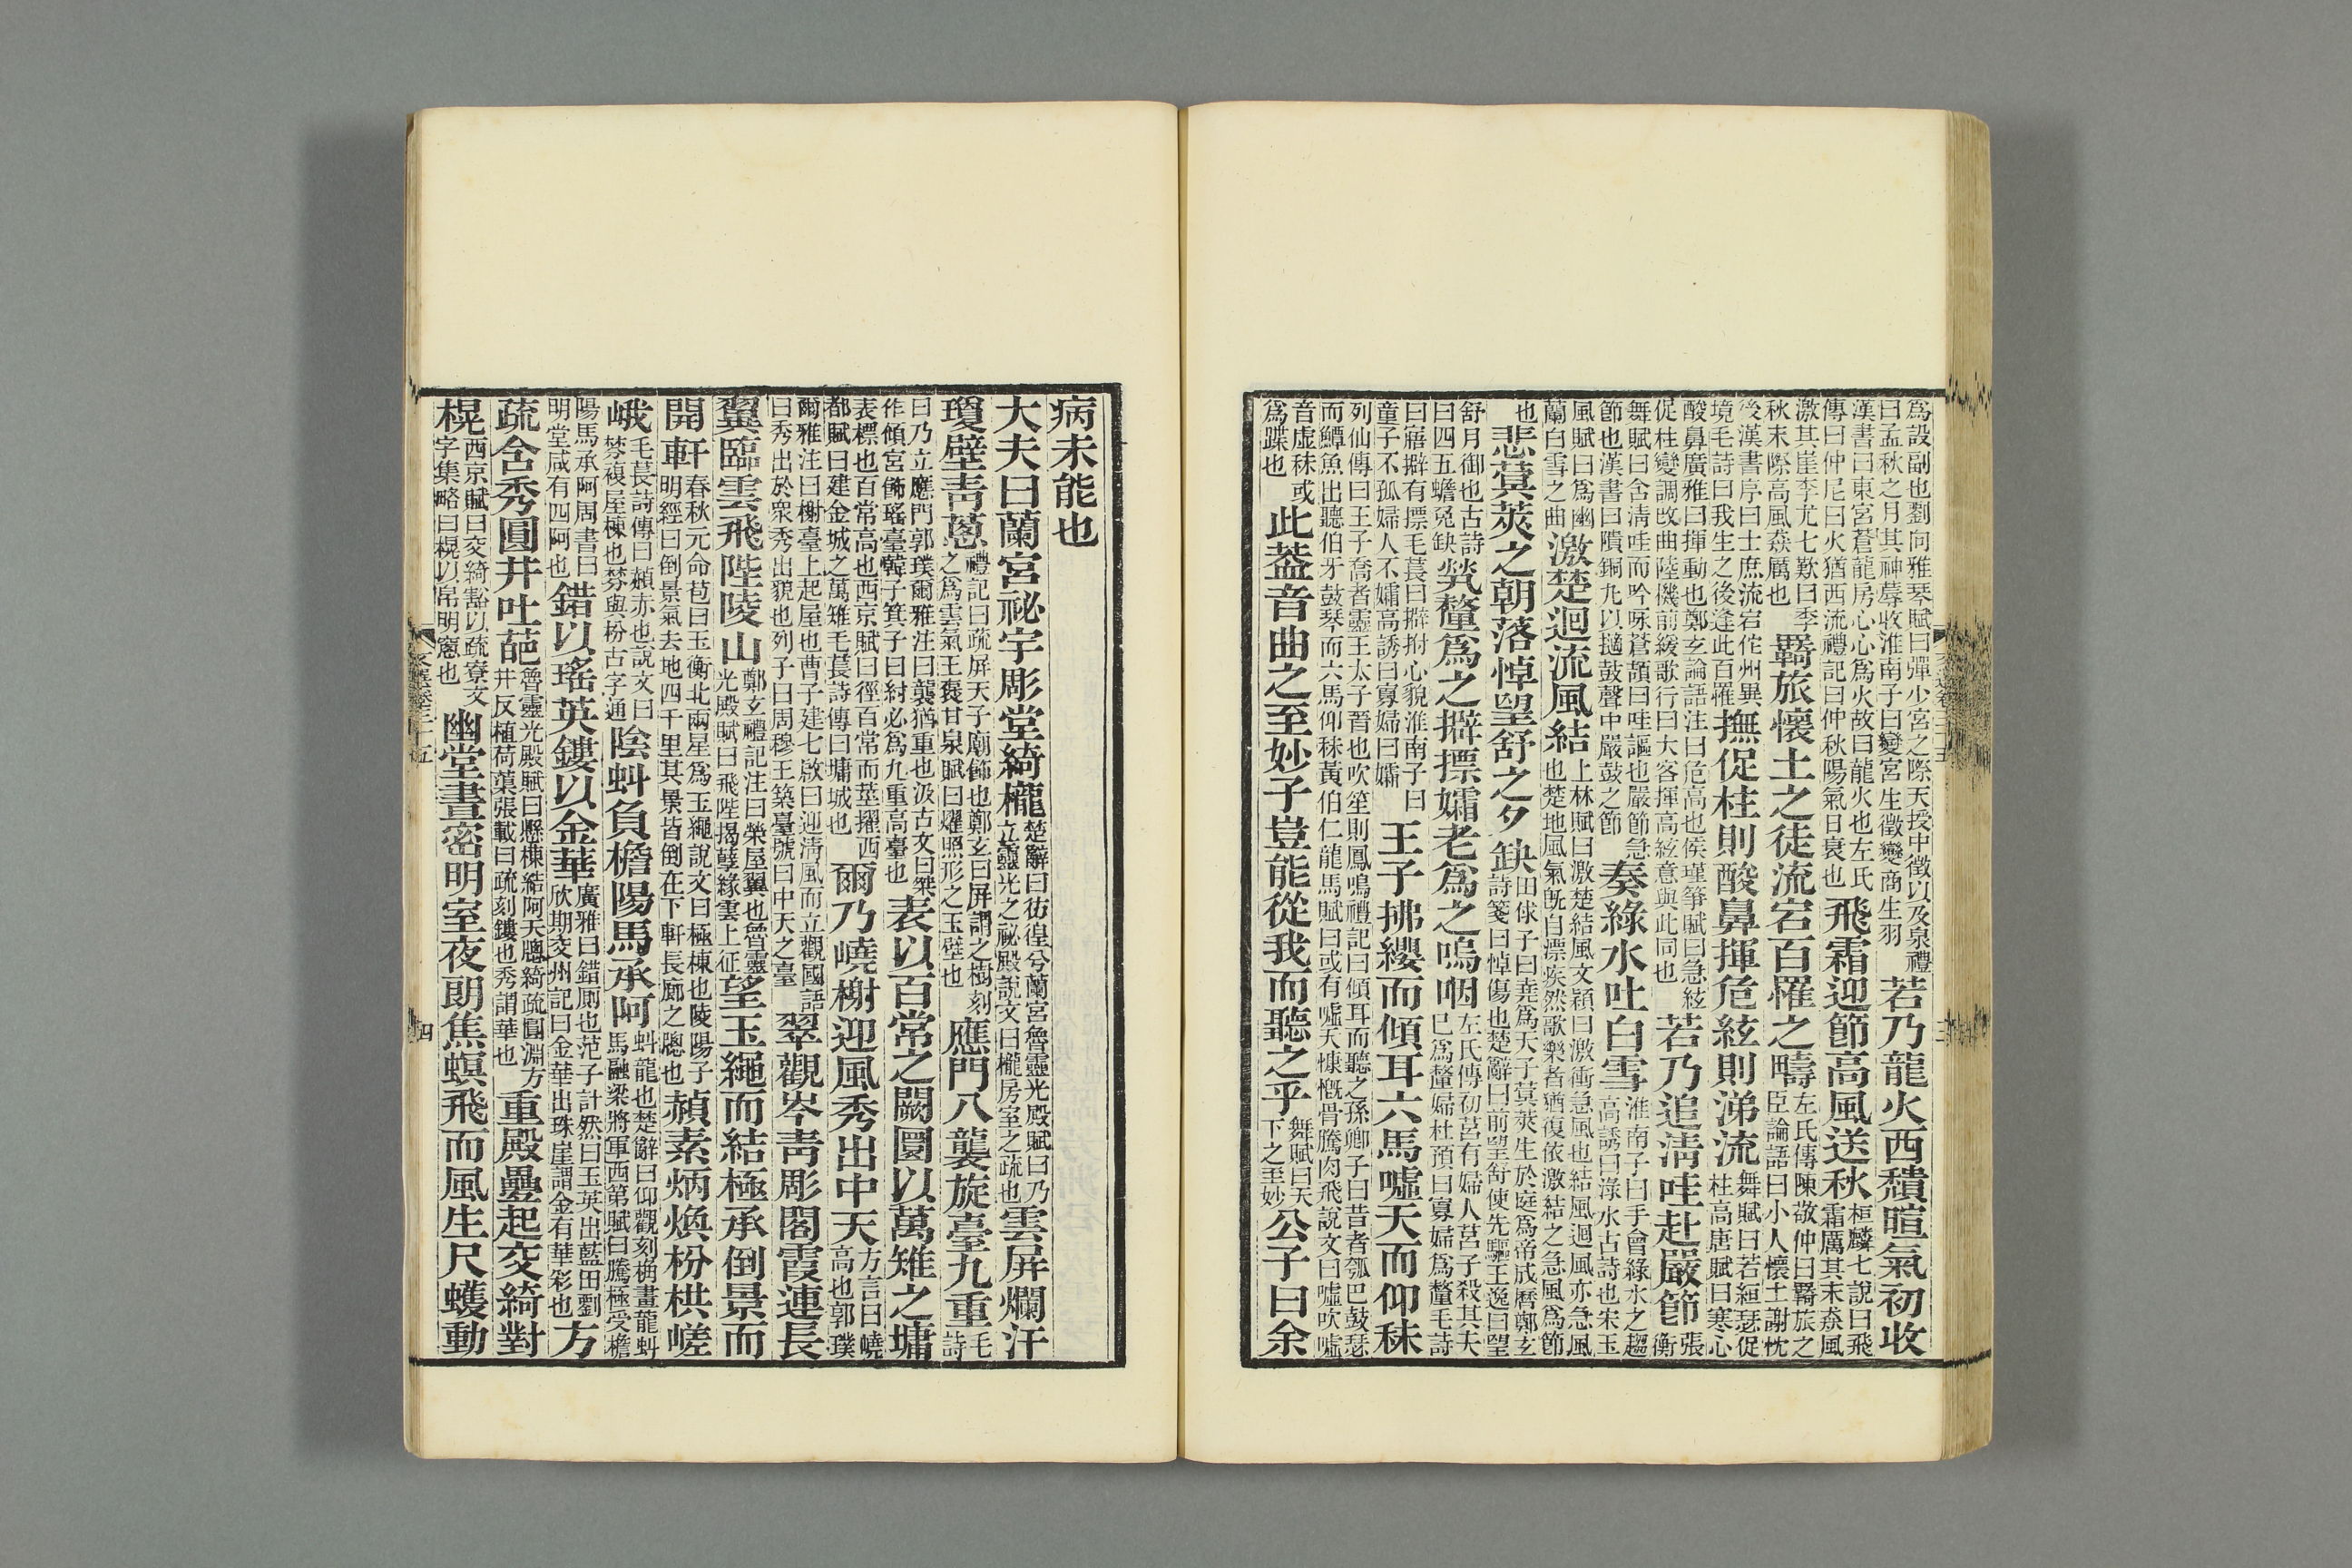 爲設副也劉向雅琴賦曰彈少宮之際天授中徵以及泉禮
曰孟秋之月其神蓐收淮南子曰變宮生徵變商生羽
若乃龍火西穨暄氣初收
漢書曰東宮蒼龍房心心爲火故曰龍火也左氏
傳曰仲尼曰火猶西流禮記曰仲秋陽氣日衰也
飛霜迎節高風送秋
桓麟七說曰飛
霜厲其末猋風
激其崖李尤七歎曰季
秋末際高風猋厲也
羇旅懷土之徒流宕百罹之疇
左氏傳陳敬仲曰羇旅之
臣論語曰小人懷土謝忱
後漢書序曰士庶流宕佗州異
境毛詩曰我生之後逢此百罹
撫促柱則酸鼻揮危絃則涕流
舞賦曰若絙瑟促
柱高唐賦曰寒心
酸鼻廣雅曰揮動也鄭玄論語注曰危高也侯瑾箏賦曰急絃
促柱變調改曲陸機前緩歌行曰大客揮高絃意與此同也
若乃追清哇赴嚴節
張
衡
舞賦曰含清哇而吟咏蒼頡曰哇謳也嚴節急
節也漢書曰隤銅丸以擿鼓聲中嚴鼓之節
奏綠水吐白雪
淮南子曰手會綠水之趨
高誘曰淥水古詩也宋玉
風賦曰爲幽
蘭白雪之曲
激楚迴流風結
上林賦曰激楚結風文穎曰激衝急風也結風迴風亦急風
也楚地風氣旣自漂疾然歌樂者猶復依激結之急風爲節
也
悲蓂莢之朝落悼望舒之夕缺
田俅子曰堯爲天子蓂莢生於庭爲帝成曆鄭玄
詩箋曰悼傷也楚辭曰前望舒使先驅王逸曰望
舒月御也古詩
曰四五蟾兔缺
煢釐爲之擗摽孀老爲之嗚咽
左氏傳初莒有婦人莒子殺其夫
已爲釐婦杜預曰寡婦爲釐毛詩
曰寤擗有摽毛萇曰擗拊心貌淮南子曰
童子不孤婦人不孀高誘曰寡婦曰孀
王子拂纓而傾耳六馬噓天而仰秣
列仙傳曰王子喬者靈王太子晉也吹笙則鳳鳴禮記曰傾耳而聽之孫卿子曰昔者瓠巴鼓瑟
而鱏魚出聽伯牙鼓琴而六馬仰秣黃伯仁龍馬賦曰或有噓天慷慨骨騰肉飛說文曰噓吹噓
音虛秣或
爲蹀也
此蓋音曲之至妙子豈能從我而聽之乎
舞賦曰天
下之至妙
公子曰余
病未能也
大夫曰蘭宮祕宇彫堂綺櫳
楚辭曰彷徨兮蘭宮魯靈光殿賦曰乃
立靈光之祕殿說文曰櫳房室之疏也
雲屏爛汗
瓊壁青蔥
禮記曰疏屏天子廟飾也鄭玄曰屏謂之樹刻
之爲雲氣王襃甘泉賦曰燿照形之玉壁也
應門八襲旋臺九重
毛
詩
曰乃立應門郭璞爾雅注曰襲猶重也汲古文曰桀
作傾宮飾瑤臺韓子箕子曰紂必爲九重高臺也
表以百常之闕圜以萬雉之墉
表標也百常高也西京賦曰徑百常而莖擢西
都賦曰建金城之萬雉毛萇詩傳曰墉城也
爾乃嶢榭迎風秀出中天
方言曰嶢
高也郭璞
爾雅注曰榭臺上起屋也曹子建七啟曰迎清風而立觀國語
曰秀出於衆秀出貌也列子曰周穆王築臺號曰中天之臺
翠觀岑青彫閣霞連長
翼臨雲飛陛陵山
鄭玄禮記注曰榮屋翼也魯靈
光殿賦曰飛陛揭孽緣雲上征
望玉繩而結極承倒景而
開軒
春秋元命苞曰玉衡北兩星爲玉繩說文曰極棟也陵陽子
明經曰倒景氣去地四千里其景皆倒在下軒長廊之牕也
赬素炳煥枌栱嵯
峨
毛萇詩傳曰赬赤也說文曰
棼複屋棟也棼與枌古字通
陰虯負檐陽馬承阿
虯龍也楚辭曰仰觀刻桷畫龍虯
馬融梁將軍西第賦曰騰極受檐
陽馬承阿周書曰
明堂咸有四阿也
錯以瑤英鏤以金華
廣雅曰錯厠也范子計然曰玉英出藍田劉
欣期交州記曰金華出珠崖謂金有華彩也
方
疏含秀圓井吐葩
魯靈光殿賦曰懸棟結阿天牕綺疏圓淵方
井反植荷蕖張載曰疏刻鏤也秀謂華也
重殿疊起交綺對
榥
西京賦曰交綺豁以疏寮文
字集略曰榥以帛明窻也
幽堂晝密明室夜朗焦螟飛而風生尺蠖動
四